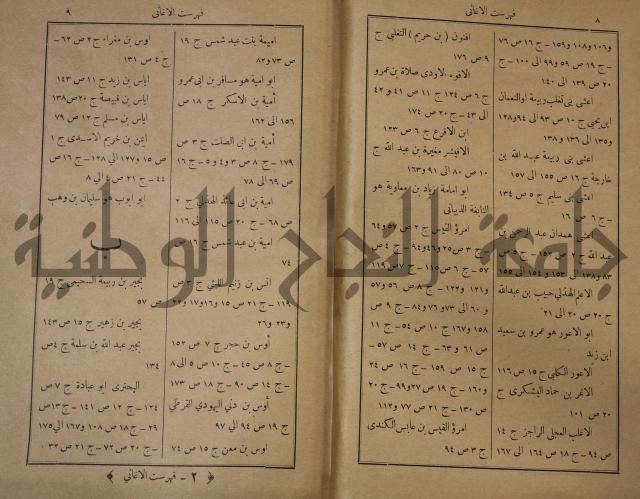 ٨
فهرست الاغانى
و١٠٦ و١٠٨ و١٥٩ - ج ١٦ ص ٧٦
- ج ١٩ ص ٥٩ و٩٩ الى ١٠٠ - ج
٢٠ ص ١٣٩ الى ١٤٠
اعشى بنى تغلب ربيعة اوالنعمان
ابن يحيى ج ١٠ ص ٩٣ الى ٩٤ و١٢٨
و١٣٥ الى ١٣٦ و١٣٨
اعشى بنى ربيعة عبد الله بن
خارجة ج ١٦ ص ١٥٥ الى ١٥٧
اعشى بنى سليم ج ٥ ص ١٣٤
- ج ٦ ص ١٦
اعشى همدان عبد الرحمن بن
عبد الله ج ٢ ص ١٥٢ - ج ٥ ص
٨٣ و١٣٨ الى ١٥٣ و١٥٤ الى ١٥٥
الاعلم الهذلى حبيب بن عبدالله
ج ٢٠ ص ٢٠ الى ٢١
ابو الاعور هو عمرو بن سعيد
ابن زيد
الاعور الكلبى ج ١٥ ص ١١٦
الاغر بن حماد اليشكرى ج
٢٠ ص ١٠١
الاغلب العجلى الراجز ج ١٤
ص ٩٤ - ج ١٨ ص ١٦٤ الى ١٦٧
افنون (بن حريم) التغلبى ج
٩ ص ١٧٦
الافوه الاودى صلاة بن عمرو
ج ٦ ص ١٢٤ ج ١١ ص ٤١ و٤٢
الى ٤٣ - ج ٢٠ ص ١٧٤
ابن الاقرع ج ٦ ص ١٢٣
الاقيشر مغيرة بن عبد الله ج
١٠ ص ٨٠ الى ٩١ و١٦٣
ابو امامة زياد بن معاوية هو
النابغة الذبيانى
امرؤ القيس ج ٢ ص ٥٧ و٦٤
ج ٣ ص ٢٥ و٤٦ و٩٤ - ج ٤ ص
٥٧ - ج ٦ ص ١١٥ - ج ٧ ص ١١٩
و١٢١ و١٢٢ - ج ٨ ص ٥٦ و٥٧
و٦٠ الى ٧٣ و٧٦ و٨٤ - ج ٩ ص
١٥٨ و١٦٧ ج ١٠ ص ٥٤ - ج ١١
ص ٦١ و٦٣ - ج ١٤ ص ٥٧ -
ج ١٥ ص ١٥٩ - ج ١٦ ص ٢٤
و١٦٠ - ج ١٩ ص ٢٧ و٩٩ - ج ٢٠
ص ١٣٠ - ج ٢١ ص ٧٧ و١١٢
امرؤ القيس بن عابس الكندى
ج ٣ ص ٩٤
فهرست الاغانى
٩
اميمة بنت عبد شمس ج ١٩
ص ٧٣ و٨٢
ابو امية هو مسافر بن ابى عمرو
أمية بن الاسكر ج ١٨ ص
١٥٦ الى ١٦٢
أمية بن ابى الصلت ج ٣ ص
١٧٩ - ج ٨ ص ٣ و٤ و٥ - ج ١٦
ص ٦٩ الى ٧٨
امية بن ابى عائذ الهذلى ج ٢
ص ٦٨ - ج ٢٠ ص ١١٥ الى ١١٦
امية بن عبد شمس ج ١٦ ص
٧٤
انس بن زنيم الليثى ج ٣ ص
١١٩ - ج ٢١ ص ١٥ و١٦ و١٧ و٢٢
و٢٣ و٢٦
أوس بن حجر ج ٧ ص ١٥٢
- ج ٨ ص ٤٥ - ج ١٠ ص ٥ الى ٨
- ج ١٤ ص ٩٠ - ج ١٨ ص ١٧٣
أوس بن دنى اليهودى القرظى
ج ١٩ ص ٩٤ الى ٩٧
اوس بن معن ج ١٥ ص ٧٤
اوس بن مغراء ج ٢ ص ٦٢ -
ج ٤ ص ١٣١
اياس بن زيد ج ١١ ص ١٤٣
اياس بن قبيصة ج ٢٠ ص ١٣٨
اياس بن مسلم ج ١٢ ص ٧٩
ايمن بن خريم الاسدى ج ١
ص ١٥ و١٢٧ الى ١٢٨ - ج ١٦ ص
٤٤ - ج ٢١ ص ٤ الى ٨
ابو ايوب هو سليمان بن وهب
ب
بجير بن ربيعة السحيمى ج ١٩
ص ٥٧
بجير بن زهير ج ١٥ ص ١٤٣
بجير عبد الله بن سلمة ج ٤ ص
١٣٤
البحترى ابو عبادة ج ٧ ص
١٢٤ - ج ١٢ ص ١٤١ - ج ١٣ ص
٢٩ - ج ١٨ ص ١٠٨ و١٦٧ الى ١٧٥
- ج ٢٠ ص ٧٢ - ج ٢١ ص ٣٢
﴿ ٢ - فهرست الاغانى ﴾
جامعة النجاح الوطنية